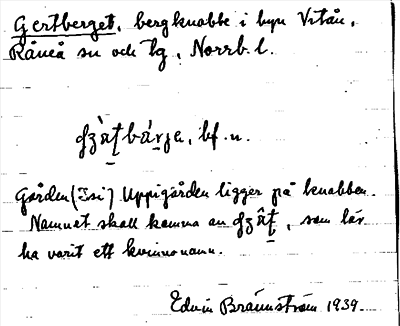 Gertberget, bergknabbe i byn Vitån,
Råneå sn och tg, Norrb. l.
bf. n.
Gården (Isi) Uppigården ligger på knabben.
Namnet skall komma av, som lär
ha varit ett kvinnonamn.
Edvin Brännström 1939.